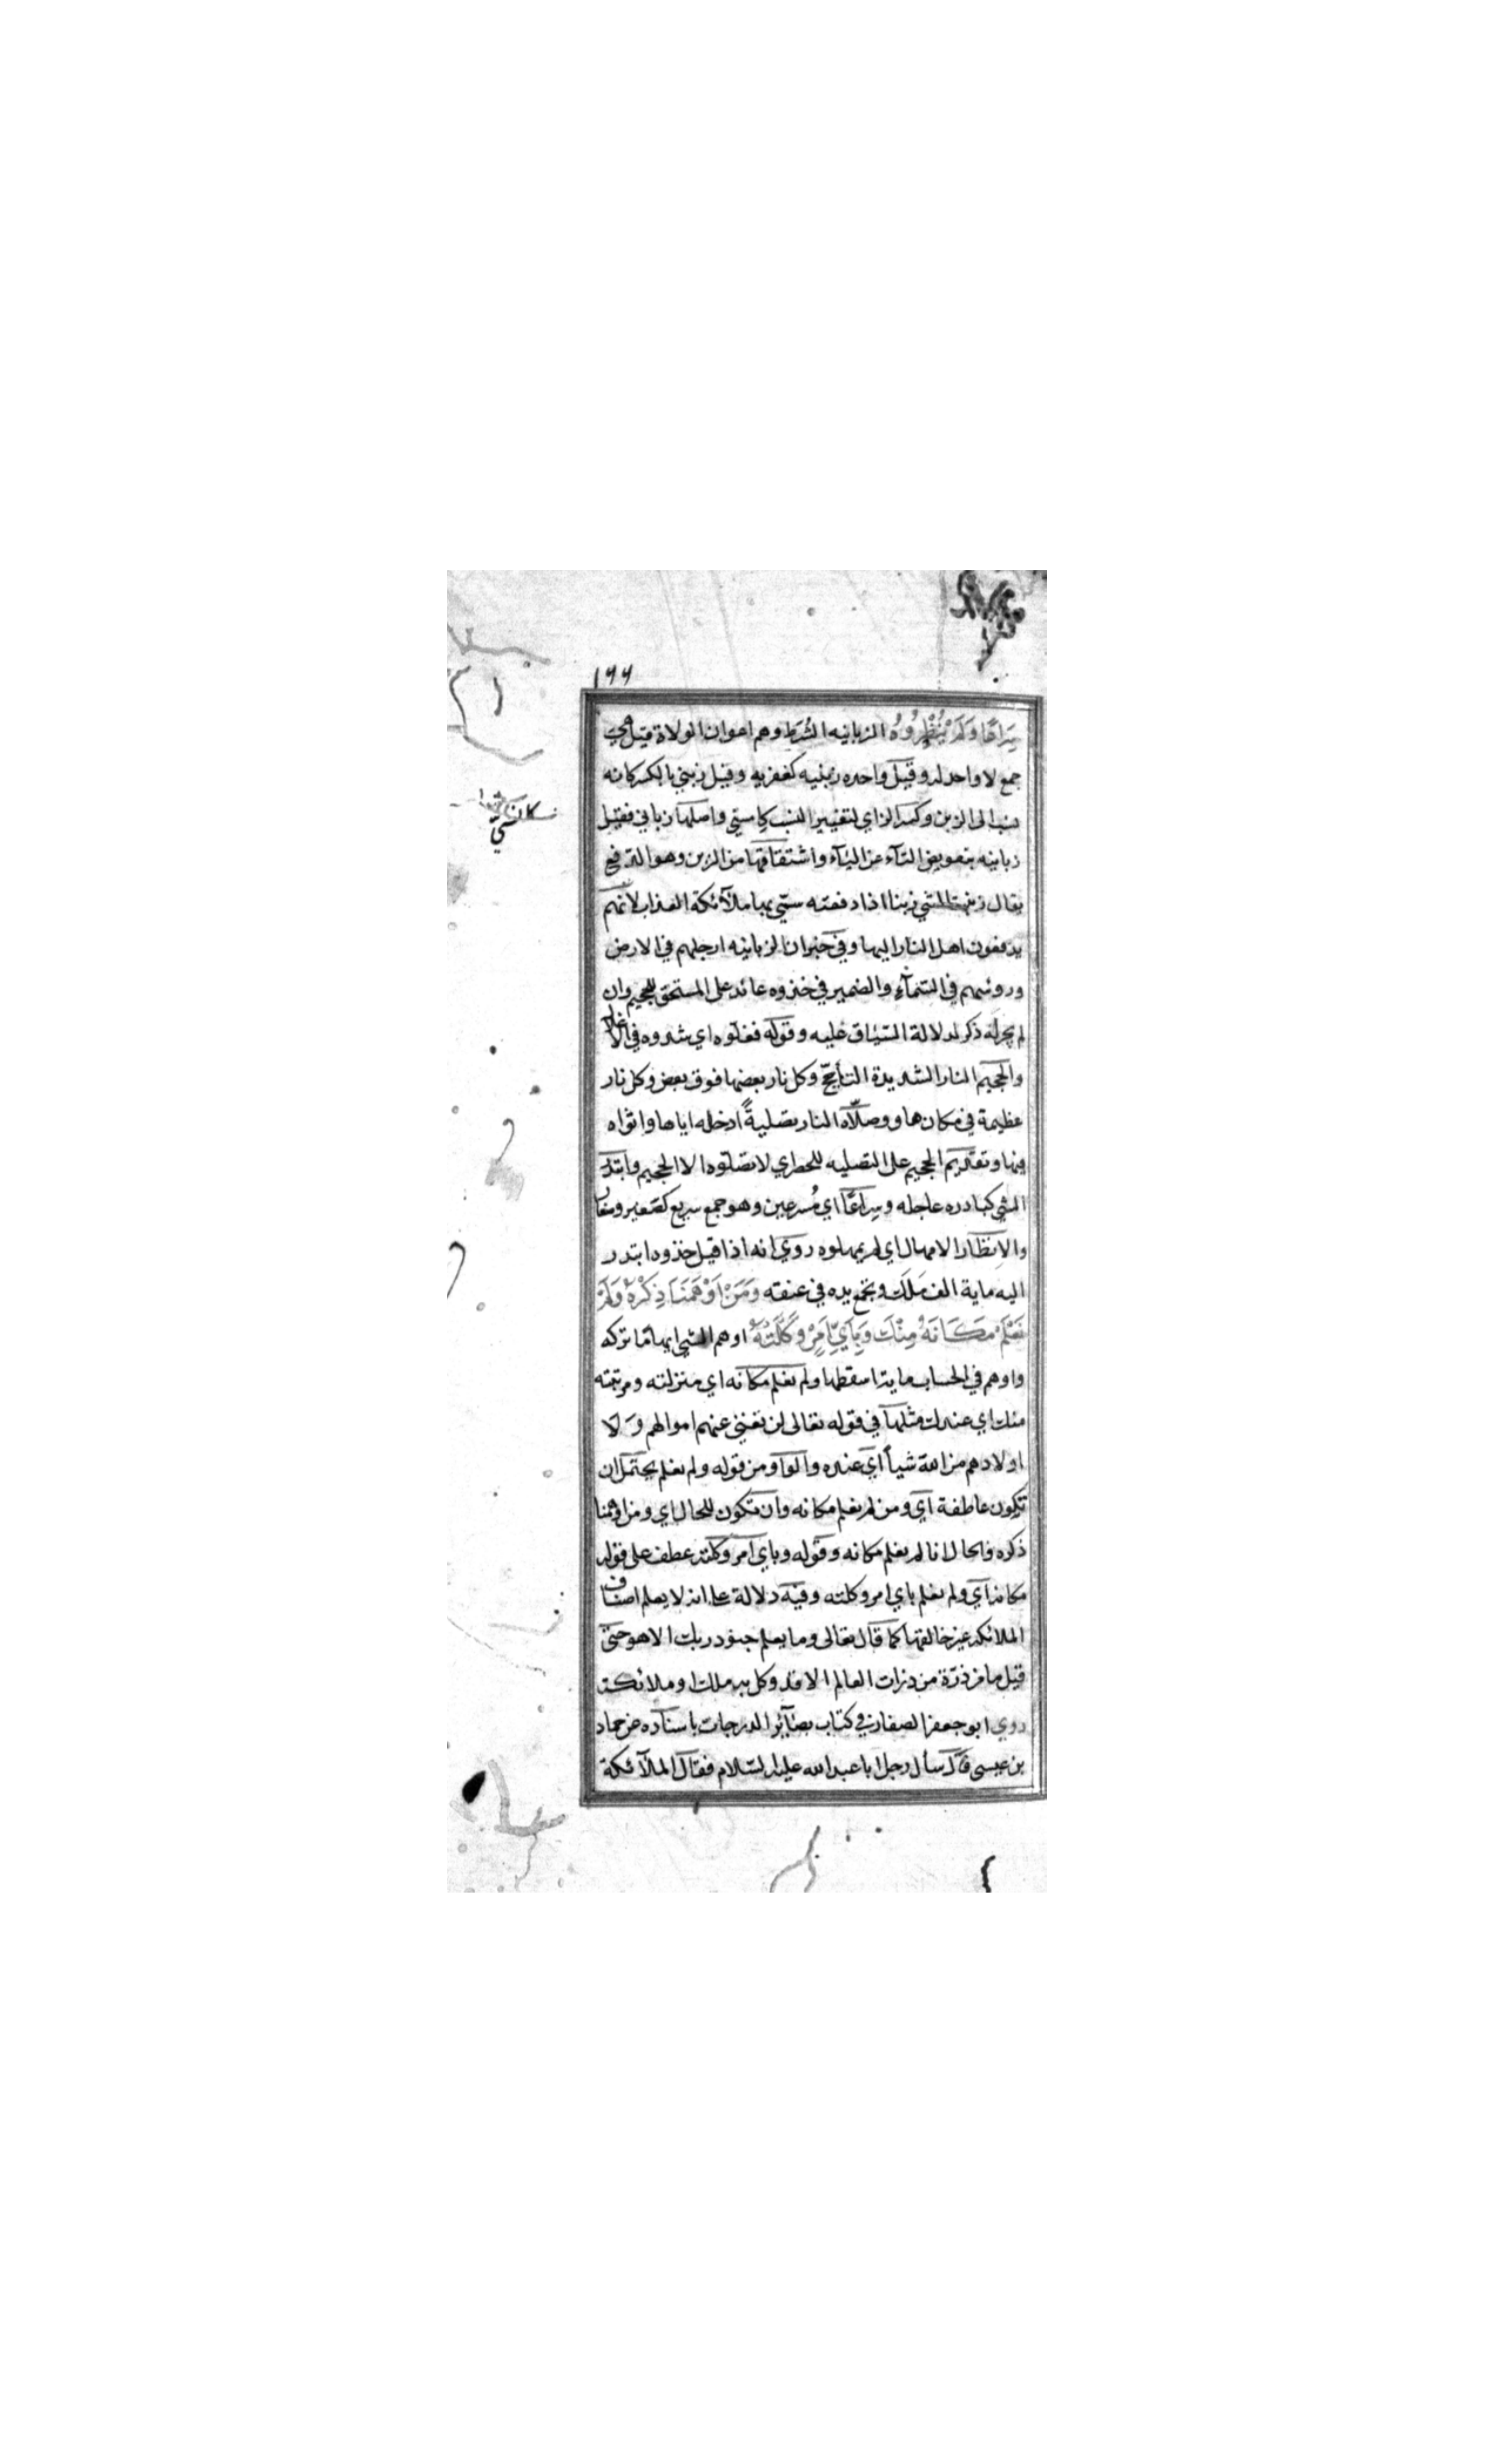 ١٦٦
سِرَاعًا وَلَمْ يُنْظِرُوهُ الزبانيه الشُرَط وهم اعوان الولاة قيل هي
جمع لا واحد له وقيل واحده زبنيه كعفريه وقيل زبني بالكسر كانه
نسب الى الزبن وكسر الزاي لتغيير النسب كامسيّ واصلها زباني فقيل
زبانيه بتعويض التآء عن اليآء واشتقاقها من الزبن وهو الدفع
يقال زبنت الشي زبنا اذا دفعته سمّي بها ملآئكة العذاب لانهم
يدفعون اهل النار اليها وفي خبر ان الزبانيه ارجلهم في الارض
ورؤسهم في السّمآء والضمير في خذوه عائد على المستحق للجحيم وان
لم يجر له ذكر لدلالة السّياق عليه وقوله فغلّوه اي شدوه في الاغلال
والجحيم النار الشديدة التأجّج وكل نار بعضها فوق بعض وكل نار
عظيمة في مكان هاو وصلّاه النار تصليةً ادخله اياها واثواه
فيها وتقديم الجحيم على التصليه للحصر اي لا تصلّوه الا الجحيم وابتدر
الشي كبادره عاجله وسِراعًا اي مُسرعين وهو جمع سريع كصغير وصغار
والانظار الامهال اي لم يمهلوه روي انه اذا قيل خذوه ابتدر
اليه ماية الف مَلَك وتجمع يده في عنقه وَمَنْ اَوْهَمْنَا ذِكْرَهُ وَلَمْ
نَعْلَمْ مَكَانَهُ مِنْكَ وَبِاَيِّ اَمْرٍ وَكَّلْتَهُ اوهم الشي ايهامًا تركه
واوهم في الحساب ماية اسقطها ولم نعلم مكانه اي منزلته ومرتبته
منك اي عندك مثلها في قوله تعالى لن تغني عنهم اموالهم وَلا
اولادهم من الله شيأ اي عنده والواو من قوله ولم نعلم يحتمل ان
تكون عاطفة اي ومن لم نعلم مكانه وان تكون للحال اي ومن اوهمنا
ذكره والحال انا لم نعلم مكانه وقوله وباي امر وكلته عطف على قوله
مكانه اي ولم نعلم باي امر وكلته وفيه دلالة على انه لا يعلم اصناف
الملائكه غير خالقها كما قال تعالى وما يعلم جنود ربك الا هو حتى
قيل ما من ذرّة من ذرات العالم الا قد وكل به ملك او ملائكة
روي ابو جعفر الصفار في كتاب بصآئر الدرجات باسناده عن حماد
بن عيسى قال سأل رجل ابا عبد الله عليه السّلام فقال الملآئكة